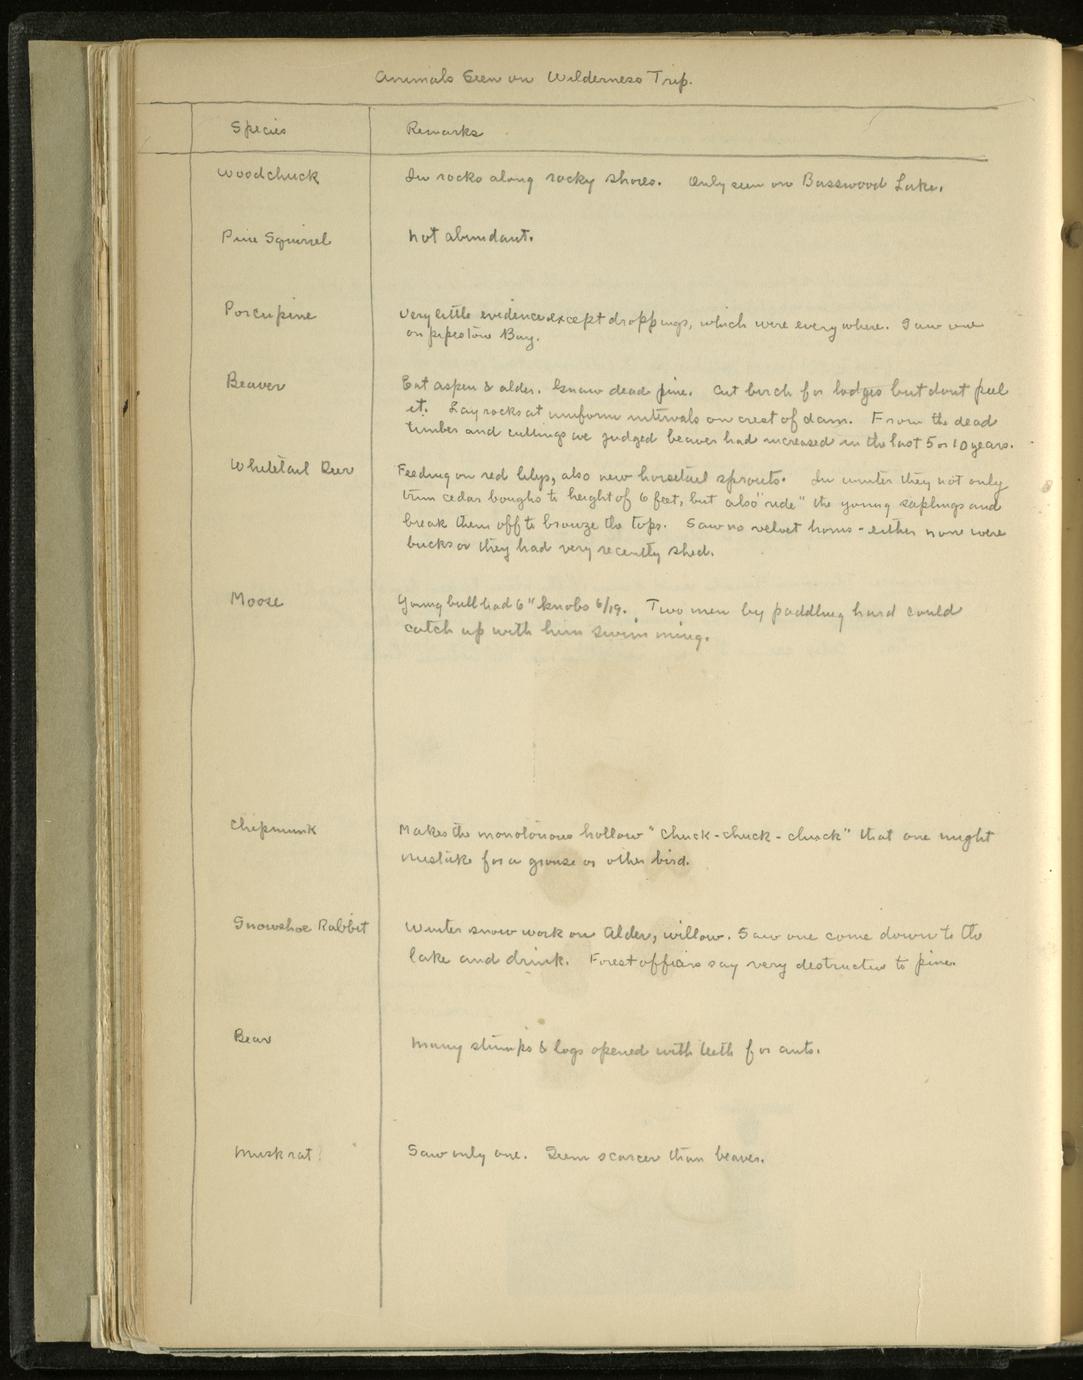 Animals Seen on Wilderness Trip.
Species Remarks
Woodchuck In rocks along rocky shores. Only seen on Basswood Lake.
Pine Squirrel Not abundant.
Porcupine Very little evidence except droppings, which were everywhere. Saw one
on pipestone Bay.
Beaver Eat aspen & alder. Gnaw dead pine. Cut birch for lodges but dont peel
it. Lay rocks at uniform intervals on crest of dam. From the dead
timber and cuttings we judged beaver had increased in the last 5 or 10 years.
Whitetail Deer Feeding on red lilys, also new horsetail sprouts. In winter they not only
trim cedar boughs to height of 6 feet, but also "ride" the young saplings and
break them off to browze the tops. Saw no velvet horns - either none were
bucks or they had very recently shed.
Moose Young bull had 6" knobs 6/19. Two men by paddling hard could
catch up with him swimming.
Chipmunk Makes the monotonous hollow "chuck-chuck-chuck" that one might
mistake for a grouse or other bird.
Snowshoe Rabbit Winter snow work on Alder, willow. Saw one come down to the
lake and drink. Forest officers say very destructive to pine.
Bear Many stumps & logs opened with teeth for ants.
Muskrat Saw only one. Seem scarcer than beaver.